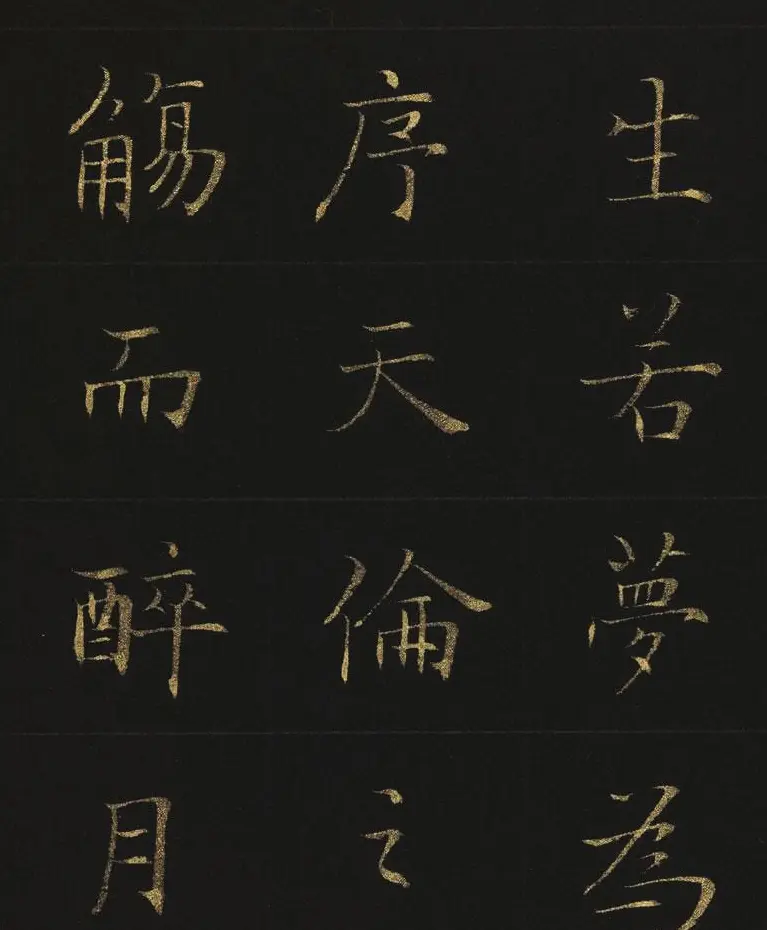 生若夢為
序天倫之
觴而醉月